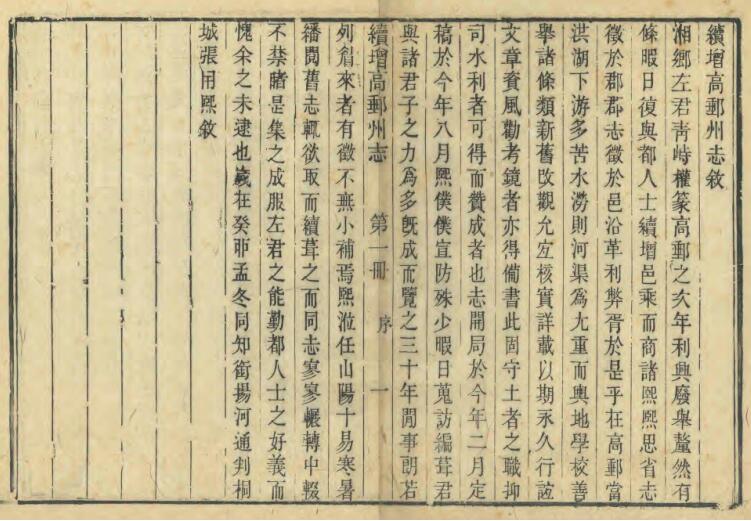 續增高郵州志敘
湘鄉左君靑峙權篆高郵之次年利興廢舉釐然有
條暇日復與都人士續增邑乘而商諸熙熙思省志
徵於郡郡志徵於邑沿革利弊胥於是乎在高郵當
洪湖下游多苦水澇則河渠爲尤重而輿地學校善
舉諸條類新舊改觀允宜核實詳載以期永久行誼
文章資風勸考鏡者亦得備書此固守土者之職抑
司水利者可得而贊成者也志開局於今年二月定
稿於今年八月熙僕僕宣防殊少暇日蒐訪編葺君
與諸君子之力爲多旣成而覽之三十年閒事朗若
續增高郵州志 第一冊 序 一
列眉來者有徵不無小補焉熙涖任山陽十易寒暑
繙閱舊志輒欲取而續葺之而同志寥寥輾轉中輟
不禁睹是集之成服左君之能勤都人士之好義而
愧余之未逮也歲在癸卯孟冬同知銜揚河通判桐
城張用熙敘